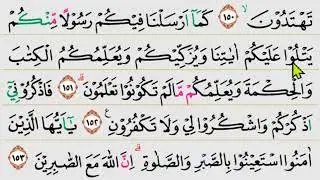 تَهْتَدُوْنَ ۙ ١٥٠ كَمَآ اَرْسَلْنَا فِيْكُمْ رَسُوْلًا مِّنْكُمْ
يَتْلُوْا عَلَيْكُمْ اٰيٰتِنَا وَيُزَكِّيْكُمْ وَيُعَلِّمُكُمُ الْكِتٰبَ
وَالْحِكْمَةَ وَيُعَلِّمُكُمْ مَّا لَمْ تَكُوْنُوْا تَعْلَمُوْنَ ۗ ١٥١ فَاذْكُرُوْنِيْٓ
اَذْكُرْكُمْ وَاشْكُرُوْا لِيْ وَلَا تَكْفُرُوْنِ ࣖ ١٥٢ يٰٓاَيُّهَا الَّذِيْنَ
اٰمَنُوا اسْتَعِيْنُوْا بِالصَّبْرِ وَالصَّلٰوةِ ۗ اِنَّ اللّٰهَ مَعَ الصّٰبِرِيْنَ ١٥٣